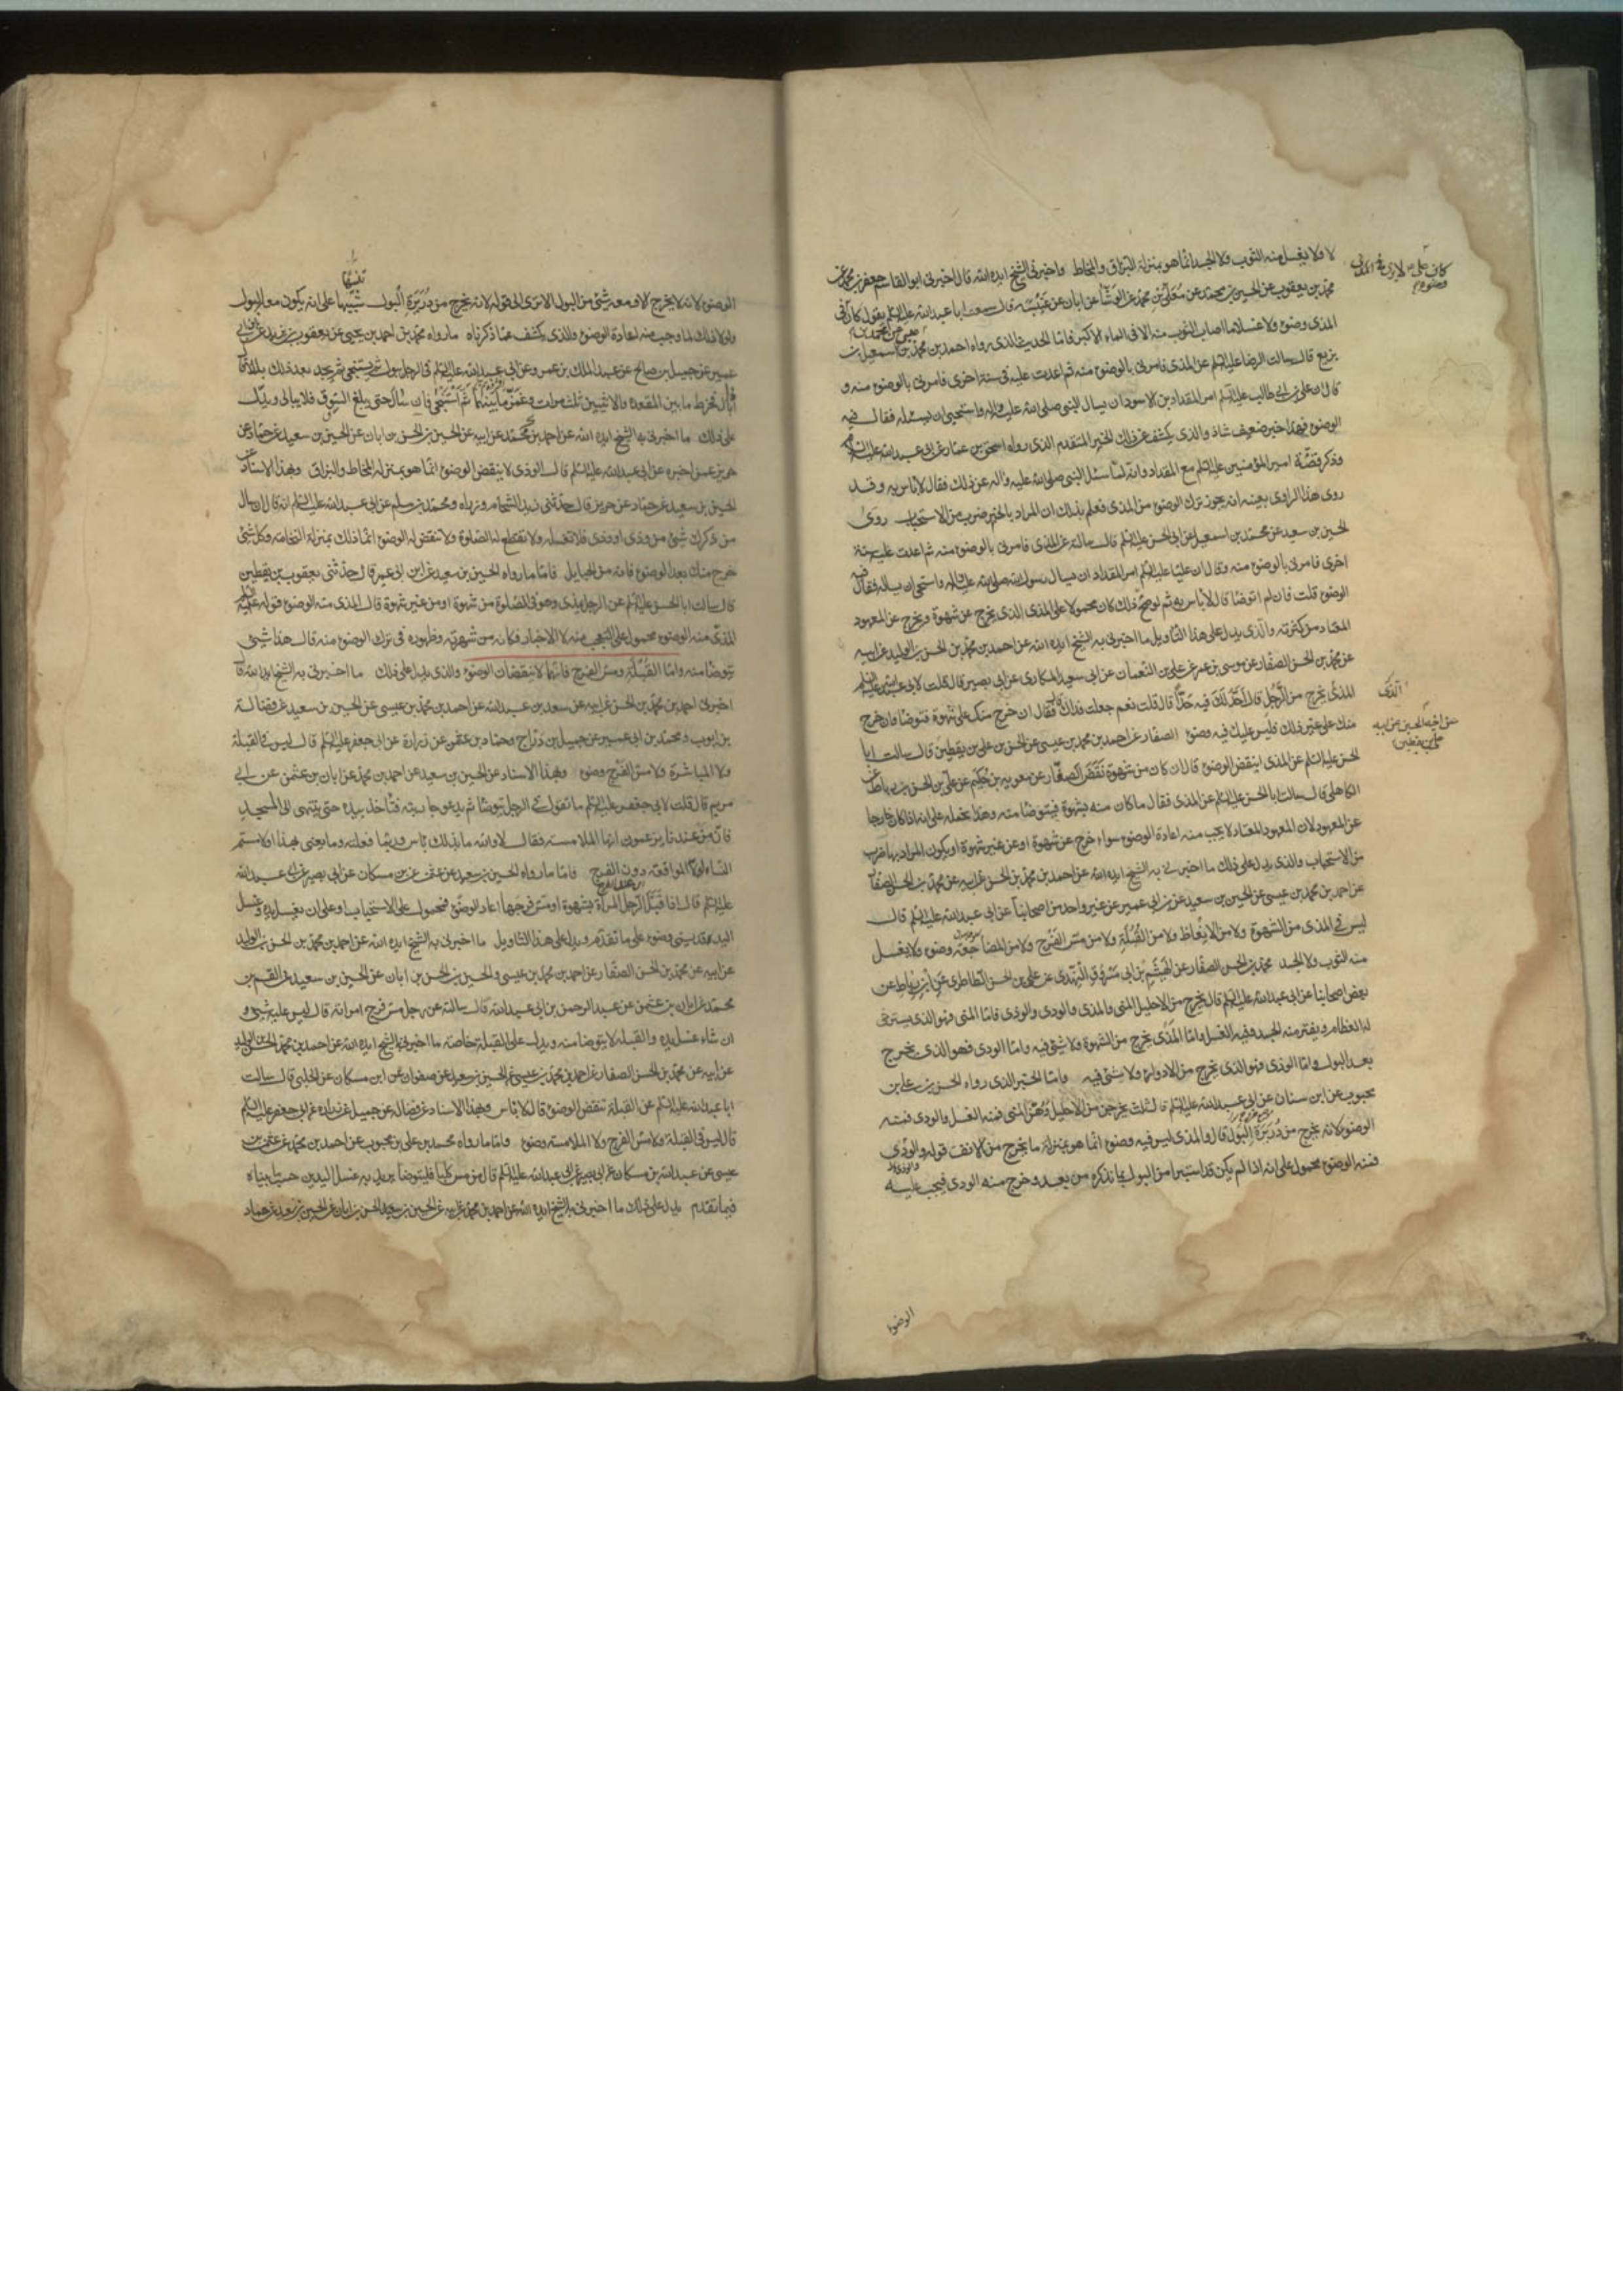 لا ولا يغسل منه الثوب ولا الجسد انما هو بمنزلة البزاق والمخاط واخبرني الشيخ ايده الله قال اخبرني ابو القاسم جعفر بن محمد عن
محمد بن يعقوب عن الحسين بن محمد عن معلى بن محمد عن الوشا عن ابان عن عنبسة قال سمعت ابا عبد الله عليه السلم يقول كان لا يرى في
المذى وضوء ولا غسل ما اصاب الثوب منه الا في الماء الاكبر فاما الحديث الذى رواه احمد بن محمد بن اسمعيل بن
بزيع قال سالت الرضا عليه السلم عن المذى فامرنى بالوضوء منه ثم اعدت عليه في سنة اخرى فامرنى بالوضوء منه و
قال ان على بن ابي طالب عليه السلم امر المقداد بن الاسود ان يسال النبى صلى الله عليه واله واستحيى ان يسئله فقال فيه
الوضوء فهذا خبر ضعيف شاذ والذى يكشف عن ذلك الخبر المتقدم الذى رواه اسحق بن عمار عن ابى عبد الله عليه السلم
وذكر قصة امير المؤمنين عليه السلم مع المقداد وانه لما سئل النبى صلى الله عليه واله عن ذلك فقال لا باس به وقد
روى هذا الراوى بعينه انه يجوز ترك الوضوء من المذى فعلم بذلك ان المراد بالخبر ضرب من الاستحباب روى
الحسين بن سعيد عن محمد بن اسمعيل عن ابى الحسن عليه السلم قال سالته عن المذى فامرنى بالوضوء منه ثم اعدت عليه سنة
اخرى فامرنى بالوضوء منه وقال ان عليا عليه السلم امر المقداد ان يسال رسول الله صلى الله عليه واله واستحيى ان يساله فقال فيه
الوضوء قلت فان لم اتوضا قال لا باس به ثم لو صح ذلك كان محمولا على المذى الذى يخرج عن شهوة ويخرج عن المعهود
المعتاد من كثرته والذى يدل على هذا التاويل ما اخبرنى به الشيخ ايده الله عن احمد بن محمد بن الحسن بن الوليد عن ابيه
عن محمد بن الحسن الصفار عن موسى بن عمر عن على بن النعمان عن ابى سعيد المكارى عن ابى بصير قال قلت لابى عبد الله عليه السلم
المذى يخرج من الرجل قال احد لك فيه حدا قال قلت نعم جعلت فداك فقال ان خرج منك على شهوة فتوضا وان خرج
منك على غير ذلك فليس عليك فيه وضوء الصفار عن احمد بن محمد بن عيسى عن الحسن بن على بن يقطين قال سالت ابا
الحسن عليه السلم عن المذى اينقض الوضوء قال ان كان من شهوة نقض الصفار عن معوية بن حكيم عن على بن الحسن بن رباط عن
الكاهلى قال سالت ابا الحسن عليه السلم عن المذى فقال ما كان منه بشهوة فيتوضا منه وهذا يحمله على انه اذا كان خارجا
عن المعهود لان المعهود المعتاد لا يجب منه اعادة الوضوء سواء خرج عن شهوة او عن غير شهوة او يكون المراد بها ضرب
من الاستحباب والذى يدل على ذلك ما اخبرنى به الشيخ ايده الله عن احمد بن محمد بن الحسن عن ابيه عن محمد بن الحسن الصفار
عن احمد بن محمد بن عيسى عن الحسين بن سعيد عن ابن ابى عمير عن غير واحد من اصحابنا عن ابى عبد الله عليه السلم قال
ليس في المذى من الشهوة ولا من الانعاظ ولا من القبلة ولا من مس الفرج ولا من المضاجعة وضوء ولا يغسل
منه الثوب ولا الجسد محمد بن الحسن الصفار عن الهيثم بن ابى مسروق النهدى عن على بن الحسن الطاطرى عن ابن رباط عن
بعض اصحابنا عن ابى عبد الله عليه السلم قال يخرج من الاحليل المنى والمذى والودى والوذى فاما المنى فهو الذى يسترخى
له العظام ويفتر منه الجسد وفيه الغسل واما المذى يخرج من الشهوة ولا شئ فيه واما الودى فهو الذى يخرج
بعد البول واما الوذى فهو الذى يخرج من الادواء ولا شئ فيه واما الخبر الذى رواه الحسن بن على بن
محبوب عن ابن سنان عن ابى عبد الله عليه السلم قال ثلث يخرجن من الاحليل وهن المنى فمنه الغسل والودى فمنه
الوضوء لانه يخرج من دريرة البول قال والمذى ليس فيه وضوء انما هو بمنزلة ما يخرج من الانف قوله والودى
فمنه الوضوء محمول على انه اذا لم يكن قد استبرا من البول بما نذكره من بعد وخرج منه الودى فيجب عليه
الوضوء
الوضوء لانه لا يخرج الا ومعه شئ من البول الا ترى الى قوله لانه يخرج من دريرة البول تنبيها على انه يكون معه البول
ولولا ذلك لما وجب منه اعادة الوضوء والذى يكشف عما ذكرناه ما رواه محمد بن احمد بن يحيى عن يعقوب بن يزيد عن ابن ابى
عمير عن جميل بن صالح عن عبد الملك بن عمرو عن ابى عبد الله عليه السلم فى الرجل يبول ثم يستنجى ثم يجد بعد ذلك بللا قال
اذا بال فخرط ما بين المقعدة والانثيين ثلث مرات وغمز ما بينهما ثم استنجى فان سال حتى يبلغ السوق فلا يبالى ويدل
على ذلك ما اخبرنى به الشيخ ايده الله عن احمد بن محمد عن ابيه عن الحسين بن الحسن بن ابان عن الحسين بن سعيد عن حماد عن
حريز عمن اخبره عن ابى عبد الله عليه السلم قال الودى لا ينقض الوضوء انما هو بمنزلة المخاط والبزاق وبهذا الاسناد عن
الحسين بن سعيد عن حماد عن حريز قال حدثنى زيد الشحام وزرارة ومحمد بن مسلم عن ابى عبد الله عليه السلم انه قال ان سال
من ذكرك شئ من مذى او ودى فلا تغسله ولا تقطع له الصلوة ولا تنقض له الوضوء انما ذلك بمنزلة النخامة وكل شئ
خرج منك بعد الوضوء فانه من الحبايل فاما ما رواه الحسين بن سعيد عن ابن ابى عمير قال حدثنى يعقوب بن يقطين
قال سالت ابا الحسن عليه السلم عن الرجل يمذى وهو فى الصلوة من شهوة او من غير شهوة قال المذى منه الوضوء قوله عليه السلم
المذى منه الوضوء محمول على التعجب منه لا الاخبار فكانه من شهرته وظهوره فى ترك الوضوء منه قال هذا شئ
يتوضا منه واما القبلة ومس الفرج فانهما لا ينقضان الوضوء والذى يدل على ذلك ما اخبرنى به الشيخ ايده الله قال
اخبرنى احمد بن محمد بن الحسن عن ابيه عن سعد بن عبد الله عن احمد بن محمد بن عيسى عن الحسين بن سعيد عن فضالة
بن ايوب ومحمد بن ابى عمير عن جميل بن دراج وحماد بن عثمن عن زرارة عن ابى جعفر عليه السلم قال ليس فى القبلة
ولا المباشرة ولا مس الفرج وضوء وبهذا الاسناد عن الحسين بن سعيد عن احمد بن محمد عن ابان بن عثمن عن ابى
مريم قال قلت لابى جعفر عليه السلم ما تقول فى الرجل يتوضا ثم يدعو جاريته فتاخذ بيده حتى ينتهى الى المسجد
فان من عندنا يزعمون انها الملامسة فقال لا والله ما بذلك باس وربما فعلته وما يعنى بهذا او لامستم
النساء الا المواقعة دون الفرج فاما ما رواه الحسين بن سعيد عن عثمن عن ابن مسكان عن ابى بصير عن ابى عبد الله
عليه السلم قال اذا قبل الرجل المراة بشهوة او مس فرجها اعاد الوضوء فمحمول على الاستحباب او على ان يغسل يده وغسل
اليد قد يسمى وضوء على ما تقدم ويدل على هذا التاويل ما اخبرنى به الشيخ ايده الله عن احمد بن محمد بن الحسن بن الوليد
عن ابيه عن محمد بن الحسن الصفار عن احمد بن محمد بن عيسى والحسين بن الحسن بن ابان عن الحسين بن سعيد عن القسم بن
محمد عن ابان بن عثمن عن عبد الرحمن بن ابى عبد الله قال سالته عن رجل مس فرج امراته قال ليس عليه شئ و
ان شاء غسل يده والقبلة لا يتوضا منه ويدل على القبلة خاصة ما اخبرنى به الشيخ ايده الله عن احمد بن محمد بن الحسن بن الوليد
عن ابيه عن محمد بن الحسن الصفار عن احمد بن محمد بن عيسى عن الحسين بن سعيد عن صفوان عن ابن مسكان عن الحلبى قال سالت
ابا عبد الله عليه السلم عن القبلة تنقض الوضوء قال لا باس وبهذا الاسناد عن فضالة عن جميل عن زرارة عن ابى جعفر عليه السلم
قال ليس فى القبلة ولا مس الفرج ولا الملامسة وضوء واما ما رواه محمد بن على بن محبوب عن احمد بن محمد عن عثمن بن
عيسى عن عبد الله بن مسكان عن ابى بصير عن ابى عبد الله عليه السلم قال من مس كلبا فليتوضا يريد به غسل اليدين حسبما بيناه
فيما تقدم يدل على ذلك ما اخبرنى به الشيخ ايده الله عن احمد بن محمد عن ابيه عن الحسين بن الحسن بن ابان عن الحسين بن سعيد عن حماد